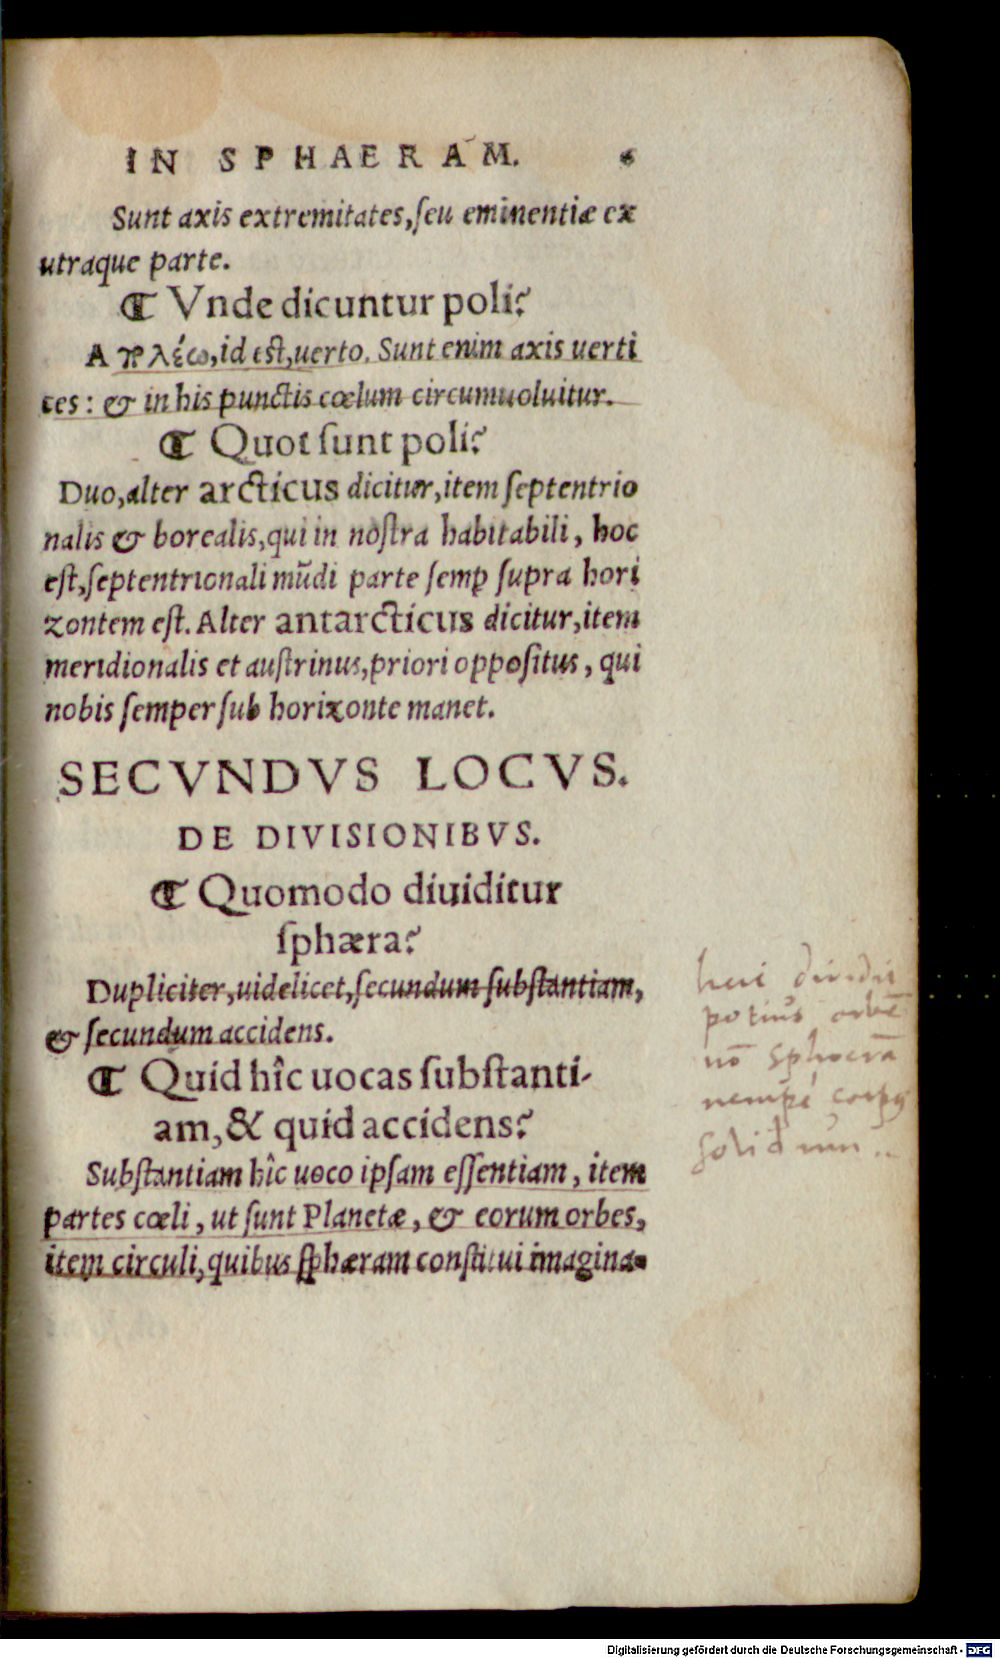 IN SPHAERAM. 6
Sunt axis extremitates, ſeu eminentiæ ex
utraque parte.
¶ Vnde dicuntur poli?
A πλέω, id eſt, uerto. Sunt enim axis uerti
ces: & in his punctis cœlum circumuoluitur.
¶ Quot ſunt poli?
Duo, alter arcticus dicitur, item ſeptentrio
nalis & borealis, qui in noſtra habitabili, hoc
eſt, ſeptentrionali mũdi parte ſemꝑ ſupra hori
zontem eſt. Alter antarcticus dicitur, item
meridionalis et auſtrinus, priori oppoſitus, qui
nobis ſemper ſub horizonte manet.
SECVNDVS LOCVS.
DE DIVISIONIBVS.
¶ Quomodo diuiditur
ſphæra?
Dupliciter, uidelicet, ſecundum ſubſtantiam,
& ſecundum accidens.
¶ Quid hîc uocas ſubſtanti-
am, & quid accidens?
Subſtantiam hîc uoco ipſam eſſentiam, item
partes cœli, ut ſunt Planetæ, & eorum orbes,
item circuli, quibus ſphæram conſtitui imagina-
potius orbē
nō sphoerā
solidum..
Digitalisierung gefördert durch die Deutsche Forschungsgemeinschaft - DFG